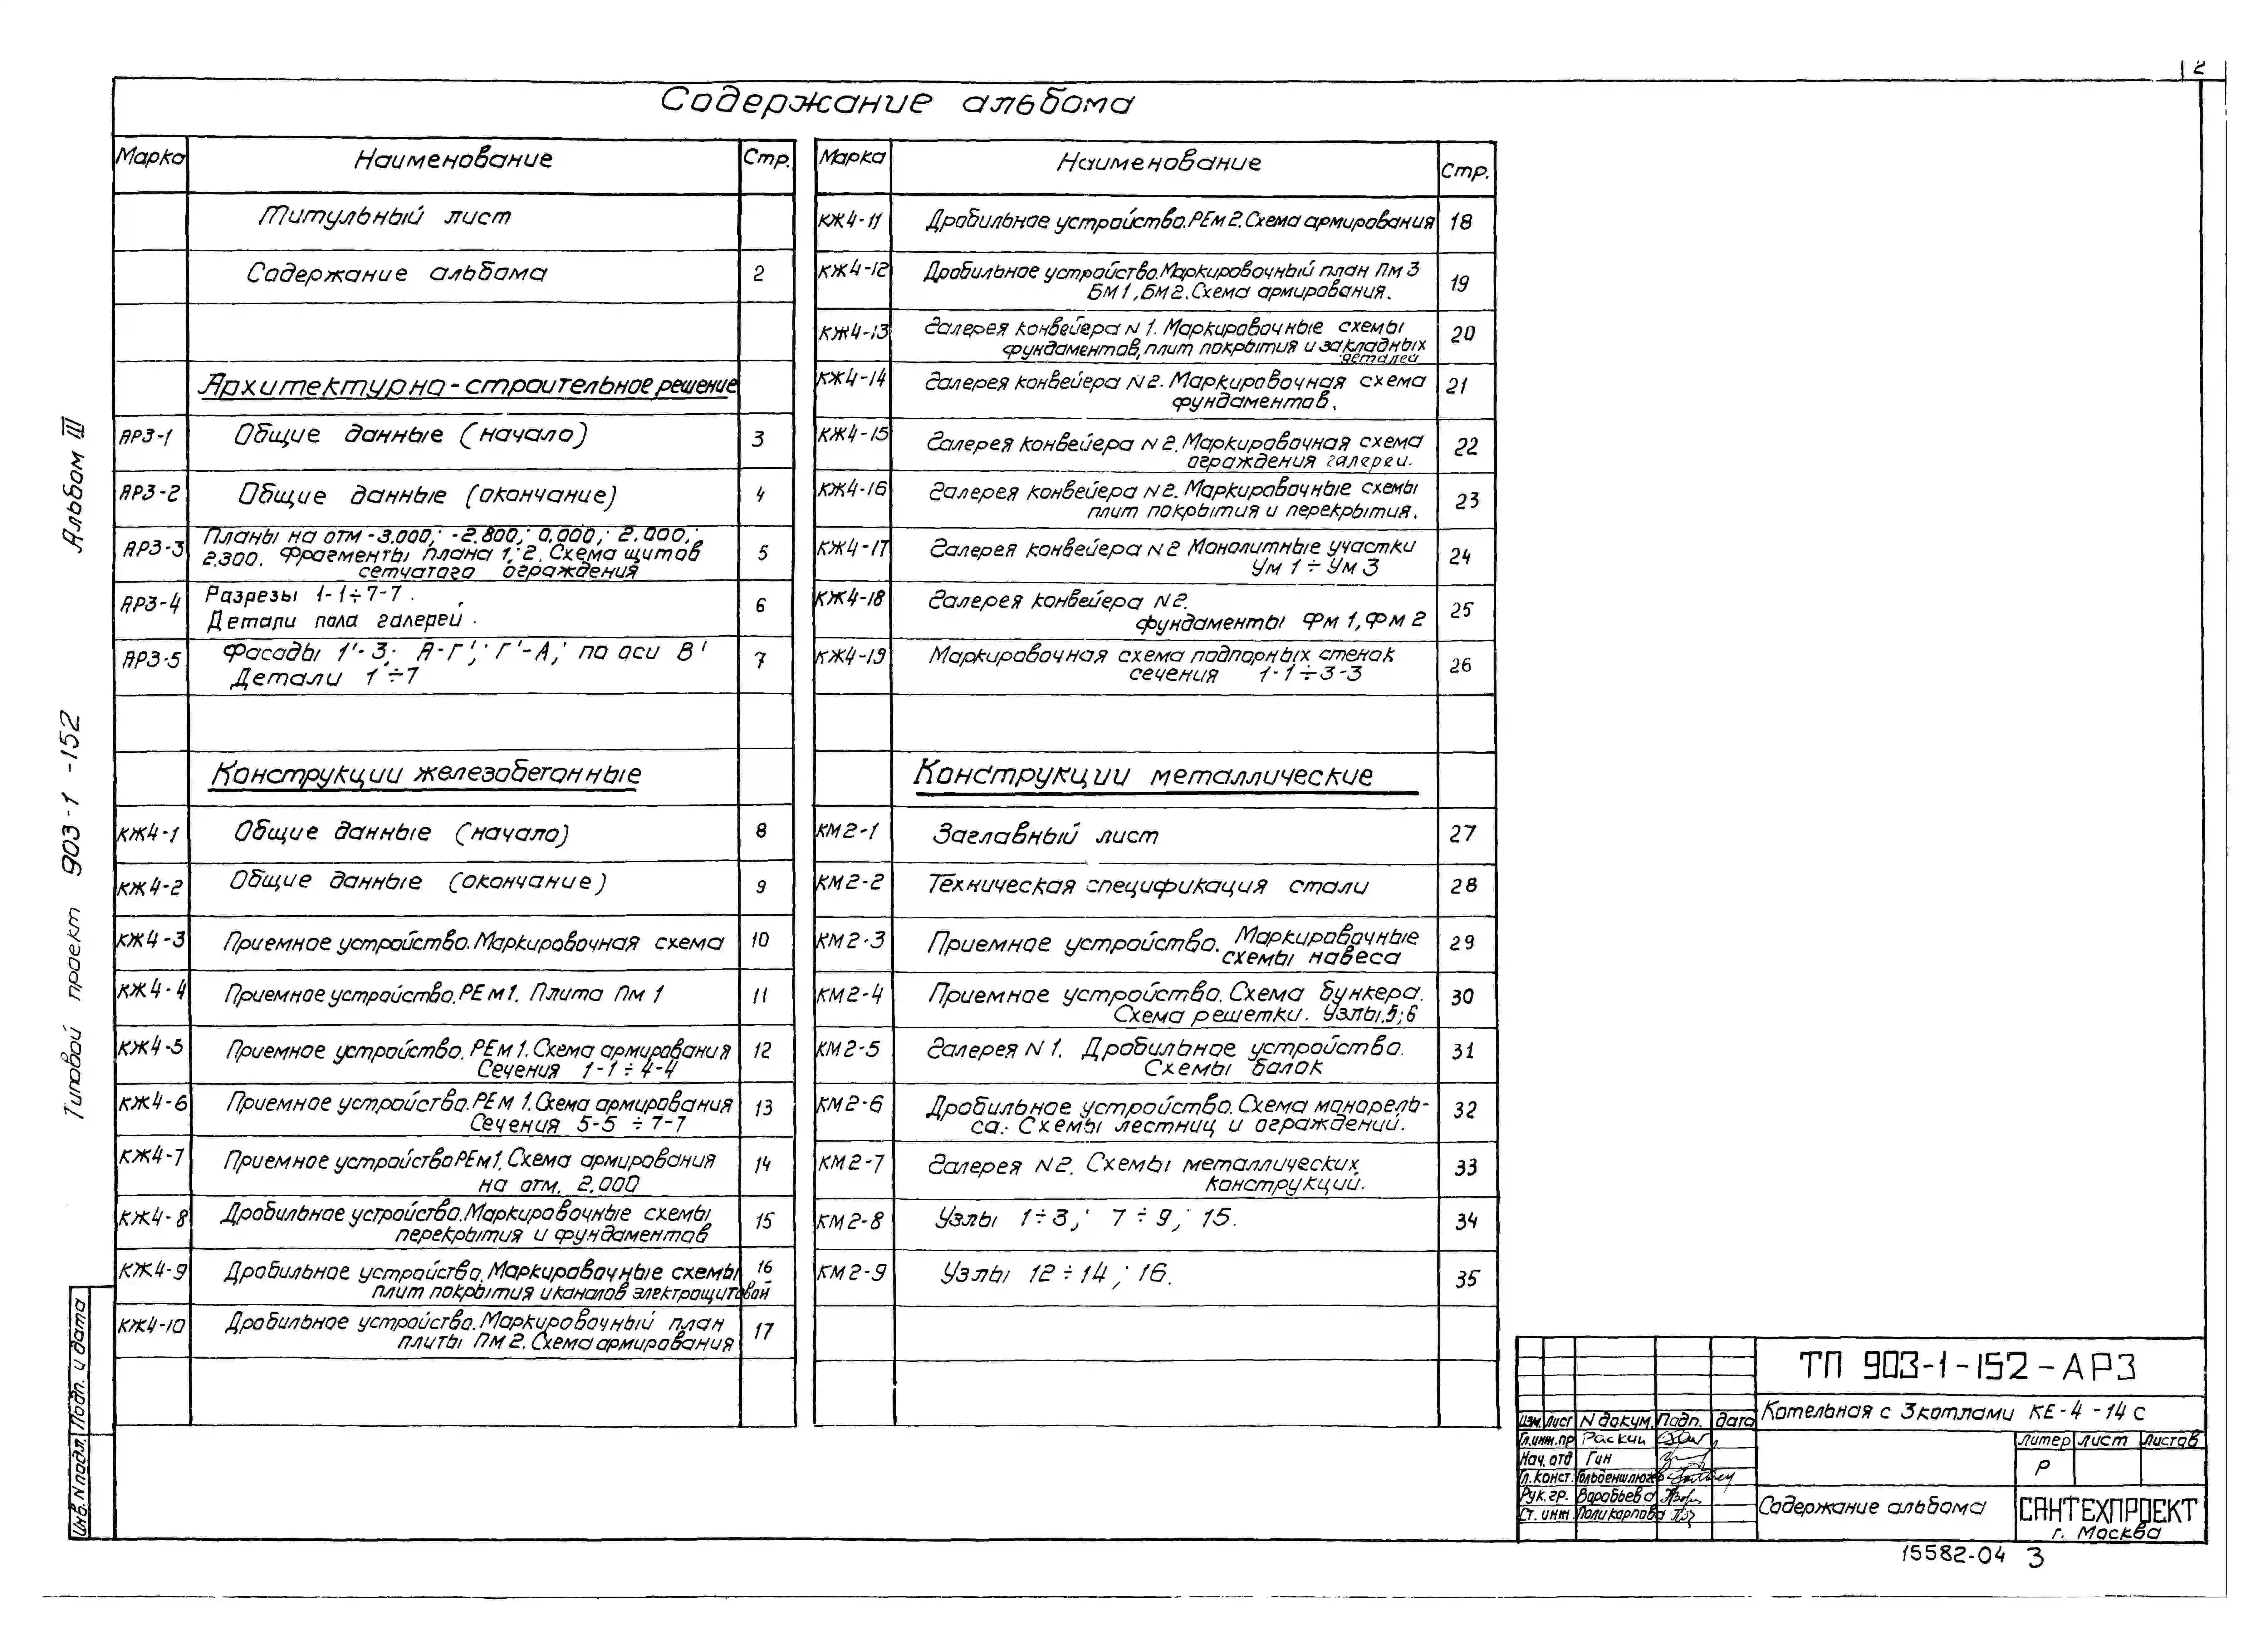 2
Содержание альбома
Марка Наименование Стр.
Титульный лист
Содержание альбома 2
Архитектурно-строительное решение
АР3-1 Общие данные (начало) 3
АР3-2 Общие данные (окончание) 4
АР3-3 Планы на отм -3.000; -2.800; 0,000; 2.000;
2.300. Фрагменты плана 1; 2. Схема щитов 5
сетчатого ограждения
АР3-4 Разрезы 1-1÷7-7. 6
Детали пола галерей.
АР3-5 Фасады 1'-3; А-Г'; Г'-А; по оси В' 7
Детали 1÷7
Конструкции железобетонные
КЖ4-1 Общие данные (начало) 8
КЖ4-2 Общие данные (окончание) 9
КЖ4-3 Приемное устройство. Маркировочная схема 10
КЖ4-4 Приемное устройство. РЕм1. Плита Пм 1 11
КЖ4-5 Приемное устройство. РЕм 1. Схема армирования 12
Сечения 1-1÷4-4
КЖ4-6 Приемное устройство. РЕм 1. Схема армирования 13
Сечения 5-5 ÷ 7-7
КЖ4-7 Приемное устройство РЕм1. Схема армирования 14
на отм. 2.000
КЖ4-8 Дробильное устройство. Маркировочные схемы 15
перекрытия и фундаментов
КЖ4-9 Дробильное устройство. Маркировочные схемы 16
плит покрытия и каналов электрощитовой
КЖ4-10 Дробильное устройство. Маркировочный план 17
плиты Пм 2. Схема армирования
Марка Наименование Стр.
КЖ4-11 Дробильное устройство. РЕм 2. Схема армирования 18
КЖ4-12 Дробильное устройство. Маркировочный план Пм 3 19
БМ1, БМ2. Схема армирования.
КЖ4-13 Галерея конвейера N 1. Маркировочные схемы 20
фундаментов, плит покрытия и закладных
деталей
КЖ4-14 Галерея конвейера N 2. Маркировочная схема 21
фундаментов.
КЖ4-15 Галерея конвейера N 2. Маркировочная схема 22
ограждения галереи.
КЖ4-16 Галерея конвейера N 2. Маркировочные схемы 23
плит покрытия и перекрытия.
КЖ4-17 Галерея конвейера N 2 Монолитные участки 24
Ум 1 ÷ Ум 3
КЖ4-18 Галерея конвейера N 2. 25
фундаменты Фм 1, Фм 2
КЖ4-19 Маркировочная схема подпорных стенок 26
сечения 1-1÷3-3
Конструкции металлические
КМ2-1 Заглавный лист 27
КМ2-2 Техническая спецификация стали 28
КМ2-3 Приемное устройство. Маркировочные 29
схемы навеса
КМ2-4 Приемное устройство. Схема бункера. 30
Схема решетки. Узлы.5;6
КМ2-5 Галерея N 1. Дробильное устройство. 31
Схемы балок
КМ2-6 Дробильное устройство. Схема монорель- 32
са. Схемы лестниц и ограждений.
КМ2-7 Галерея N2. Схемы металлических 33
конструкций.
КМ2-8 Узлы 1÷3; 7÷9; 15. 34
КМ2-9 Узлы 12÷14; 16. 35
Альбом III
Типовой проект 903-1-152
Подп. и дата
Инв. N подл.
ТП 903-1-152-АР3
Котельная с 3 котлами КЕ-4-14с
Изм. Лист N докум. Подп. Дата
Гл.инж.пр Раскин
Нач. отд Гин
Гл. конст. Гольденшлюгер
Рук. гр. Воробьева
Ст. инж Поликарпова
Литер Лист Листов
Р
Содержание альбома
САНТЕХПРОЕКТ
г. Москва
15582-04 3